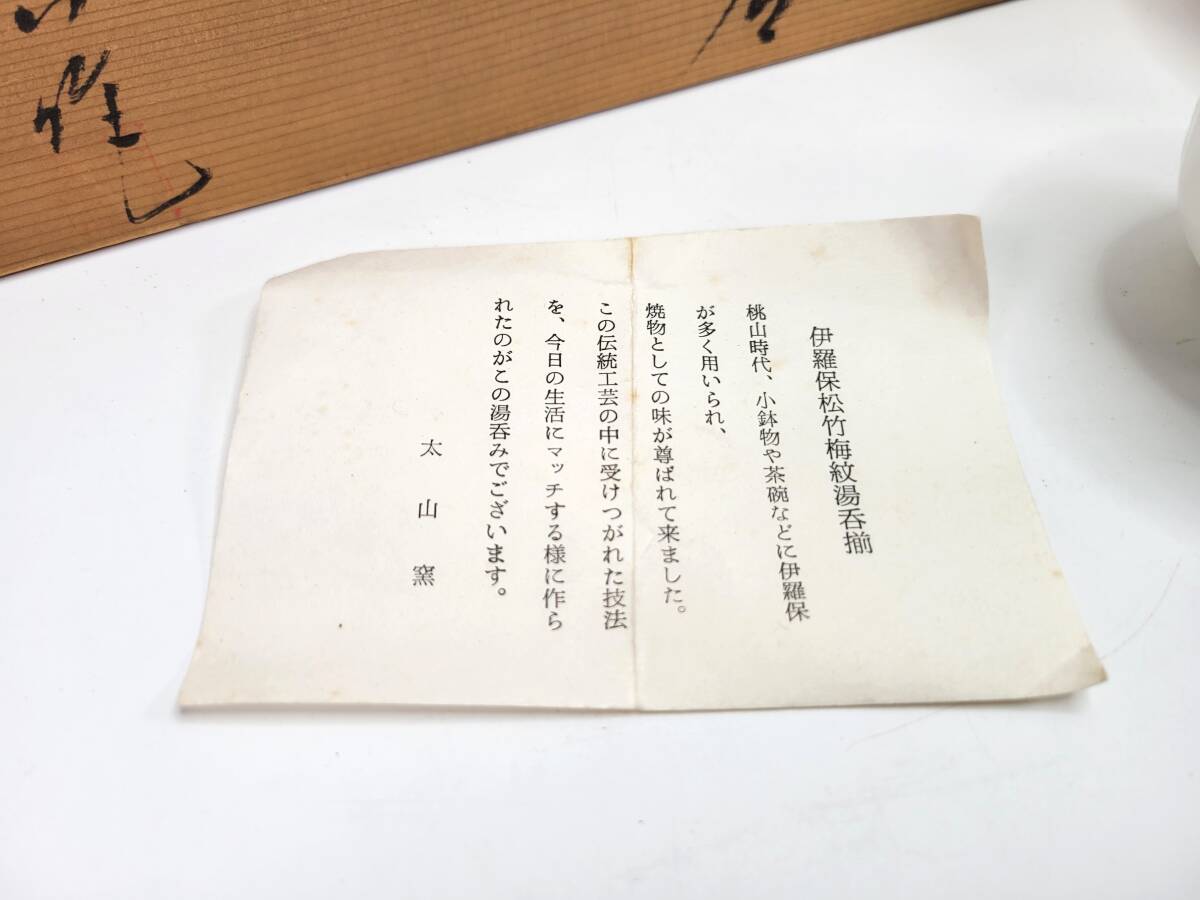 伊羅保松竹梅紋湯呑揃
桃山時代、小鉢物や茶碗などに伊羅保
が多く用いられ、
焼物としての味が尊ばれて来ました。
この伝統工芸の中に受けつがれた技法
を、今日の生活にマッチする様に作ら
れたのがこの湯呑みでございます。
太山窯